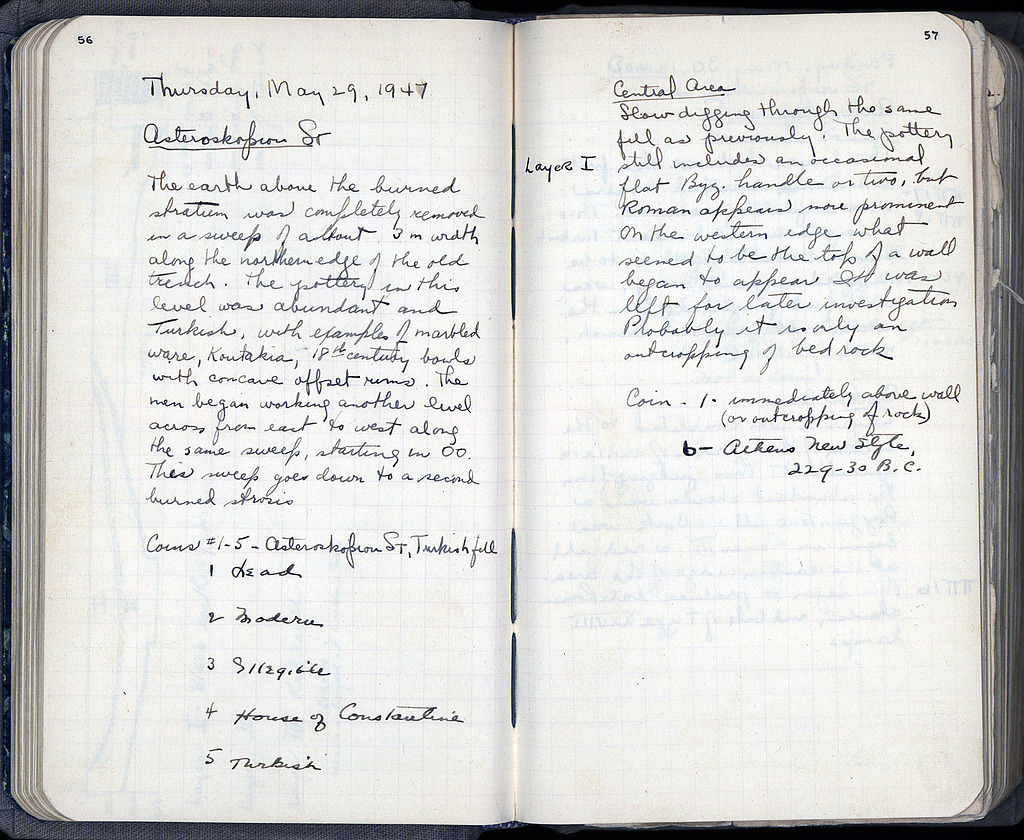 56
Thursday, May 29, 1947
Asteroskopion St
The earth above the burned
stratum was completely removed
in a sweep of about 3 m width
along the northern edge of the old
trench. The pottery in this
level was abundant and
Turkish, with examples of marbled
ware, Koutakia, 18th century bowls
with concave offset rims. The
men began working another level
across from east to west along
the same sweep, starting in OO.
This sweep goes down to a second
burned strosis
Coins #1-5 - Asteroskopion St, Turkish fill
1 Lead
2 Modern
3 Illegible
4 House of Constantine
5 Turkish
57
Central Area
Slow digging through the same
fill as previously. The pottery
Layer I still includes an occasional
flat Byz. handle or two, but
Roman appears more prominent
On the western edge what
seemed to be the top of a wall
began to appear It was
left for later investigation
Probably it is only an
outcropping of bedrock
Coin - 1 - immediately above wall
(or outcropping of rock)
6 - Athens New Style,
229-30 B.C.